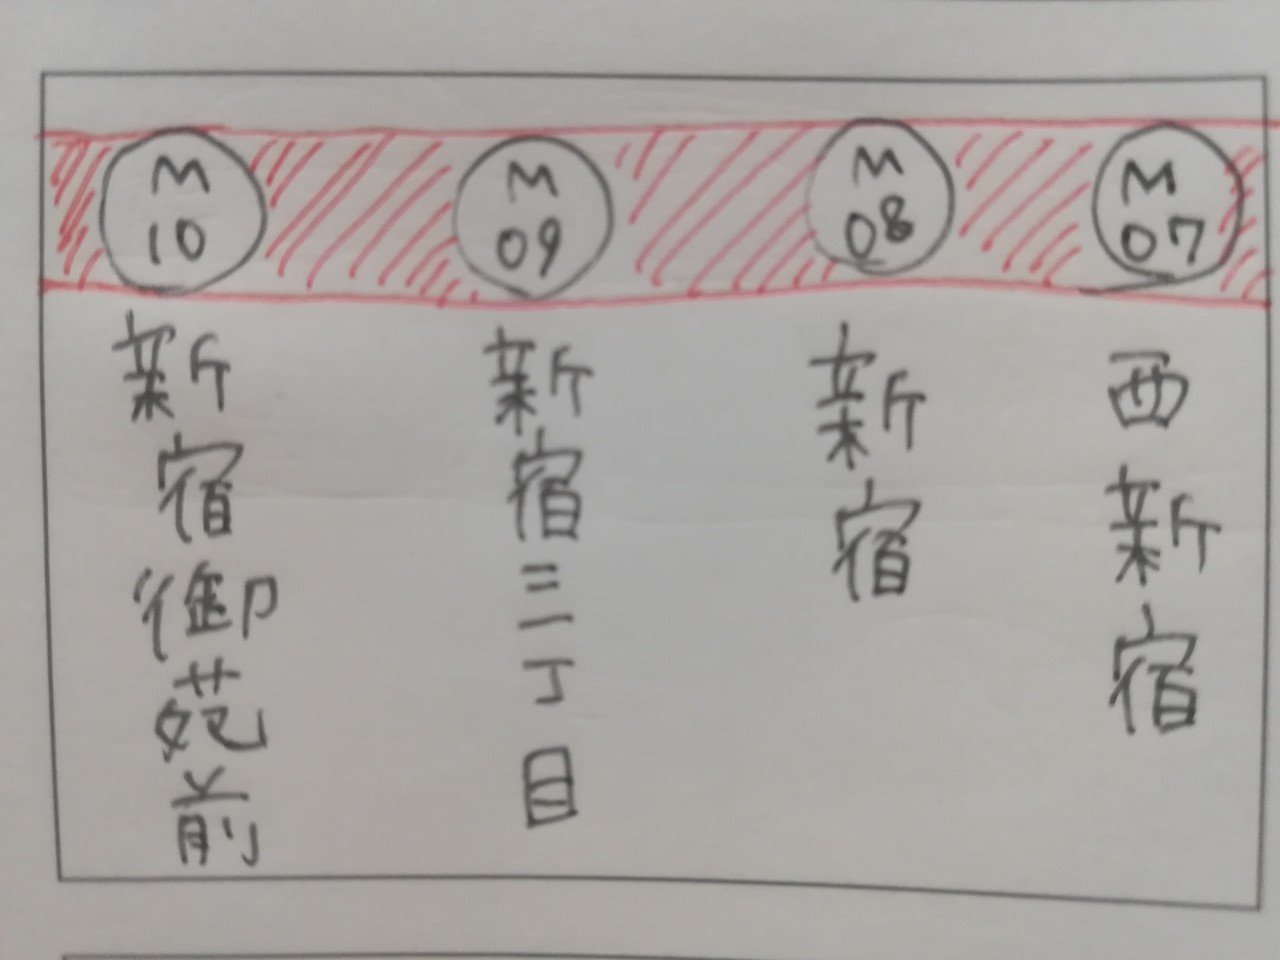 M
10
新宿御苑前
M
09
新宿三丁目
M
08
新宿
M
07
西新宿